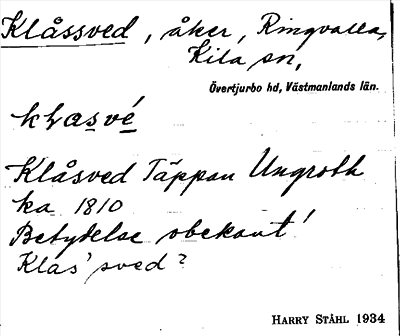 Klåssved, åker, Ringvalla,
Kila sn,
Övertjurbo hd, Västmanlands län.
Klåsved Täppan Ungroth
ka 1810
Betydelse obekant!
Klas' sved?
HARRY STÅHL 1934